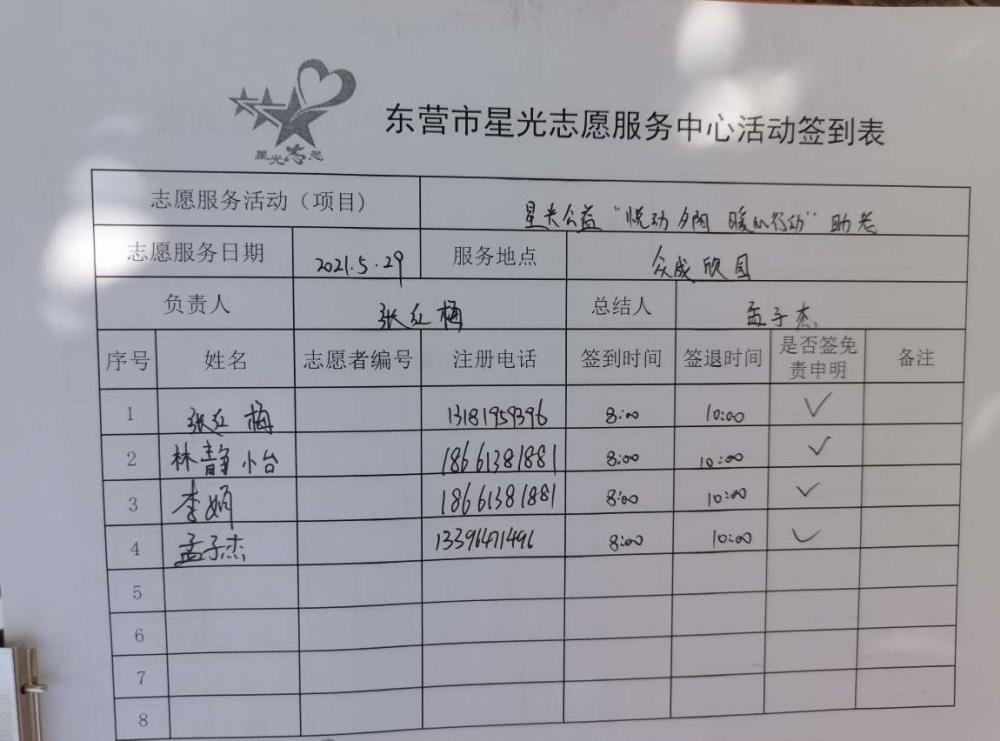 星光志愿
东营市星光志愿服务中心活动签到表
志愿服务活动（项目） 星光公益“悦动夕阳 暖心行动”助老
志愿服务日期 2021.5.29 服务地点 众成欣园
负责人 张红梅 总结人 孟子杰
序号 姓名 志愿者编号 注册电话 签到时间 签退时间 是否签免责申明 备注
1 张红梅 13181959396 8:00 10:00 ✓
2 林静 小台 18661381881 8:00 10:00 ✓
3 李娟 18661381881 8:00 10:00 ✓
4 孟子杰 13396471496 8:00 10:00 ✓
5
6
7
8